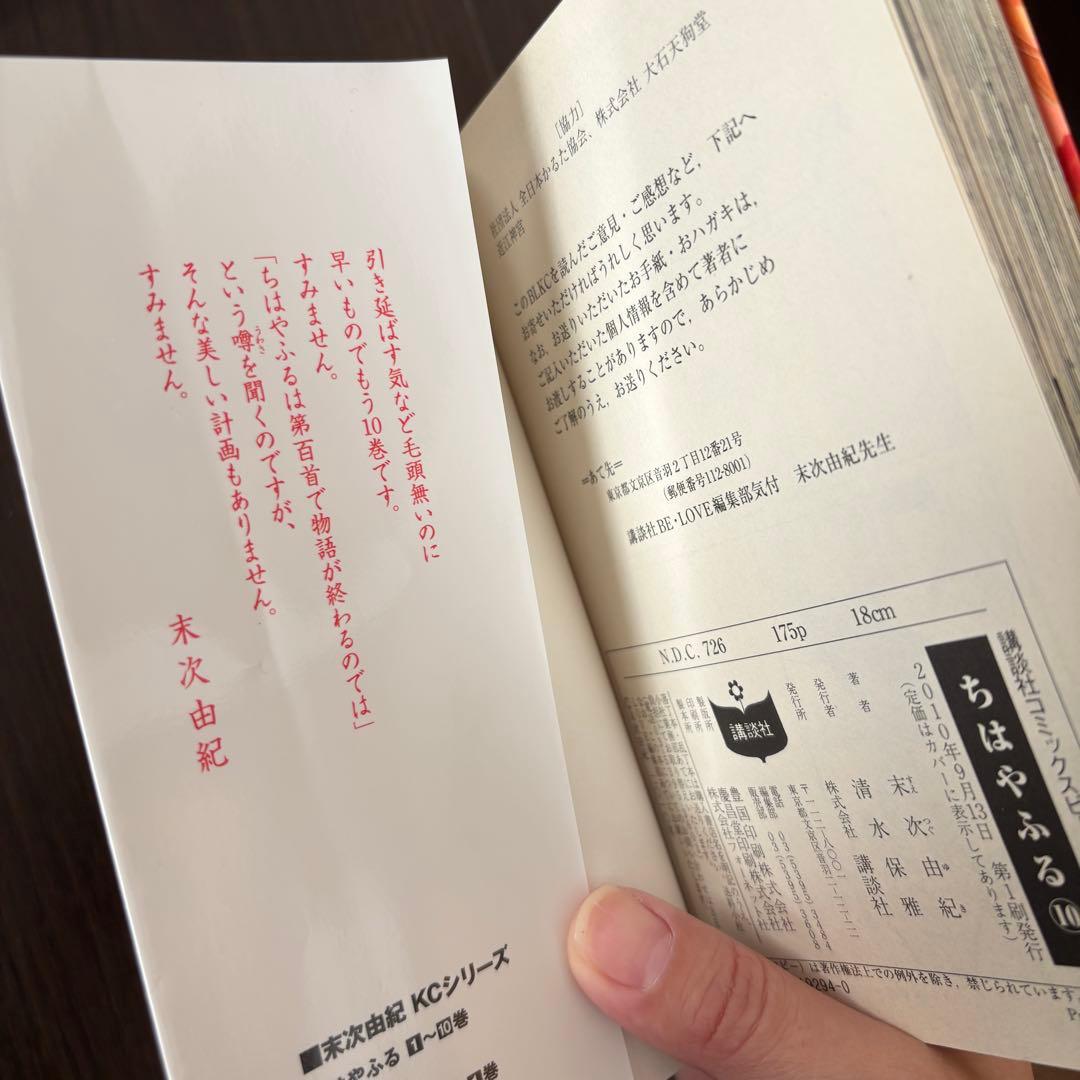 引き延ばす気など毛頭無いのに
早いものでもう10巻です。
すみません。
「ちはやふるは第百首で物語が終わるのでは」
という噂を聞くのですが、
うわさ
そんな美しい計画もありません。
すみません。
末次由紀
■末次由紀 KCシリーズ
やふる 1〜10巻
巻
［協力］
社団法人 全日本かるた協会、株式会社 大石天狗堂
近江神宮
このBLKCを読んだご意見・ご感想など、下記へ
お寄せいただければうれしく思います。
なお、お送りいただいたお手紙・おハガキは、
ご記入いただいた個人情報を含めて著者に
お渡しすることがありますので、あらかじめ
ご了解のうえ、お送りください。
=あて先=
東京都文京区音羽2丁目12番21号
（郵便番号112-8001）
講談社BE・LOVE編集部気付 末次由紀先生
N.D.C. 726 175p 18cm
講談社コミックスビ
ちはやふる⑩
2010年9月13日 第1刷発行
（定価はカバーに表示してあります）
著者 末次由紀
すえ つぐ ゆ き
発行者 清水保雅
発行所 株式会社 講談社
〒一一二-八〇〇一
東京都文京区音羽二-一二-二一
電話 編集部 03（5395）3484
販売部 03（5395）3608
講談社
印刷所 豊国印刷株式会社
製本所
製版所
ビー）は著作権法上での例外を除き、禁じられています。
9294-0